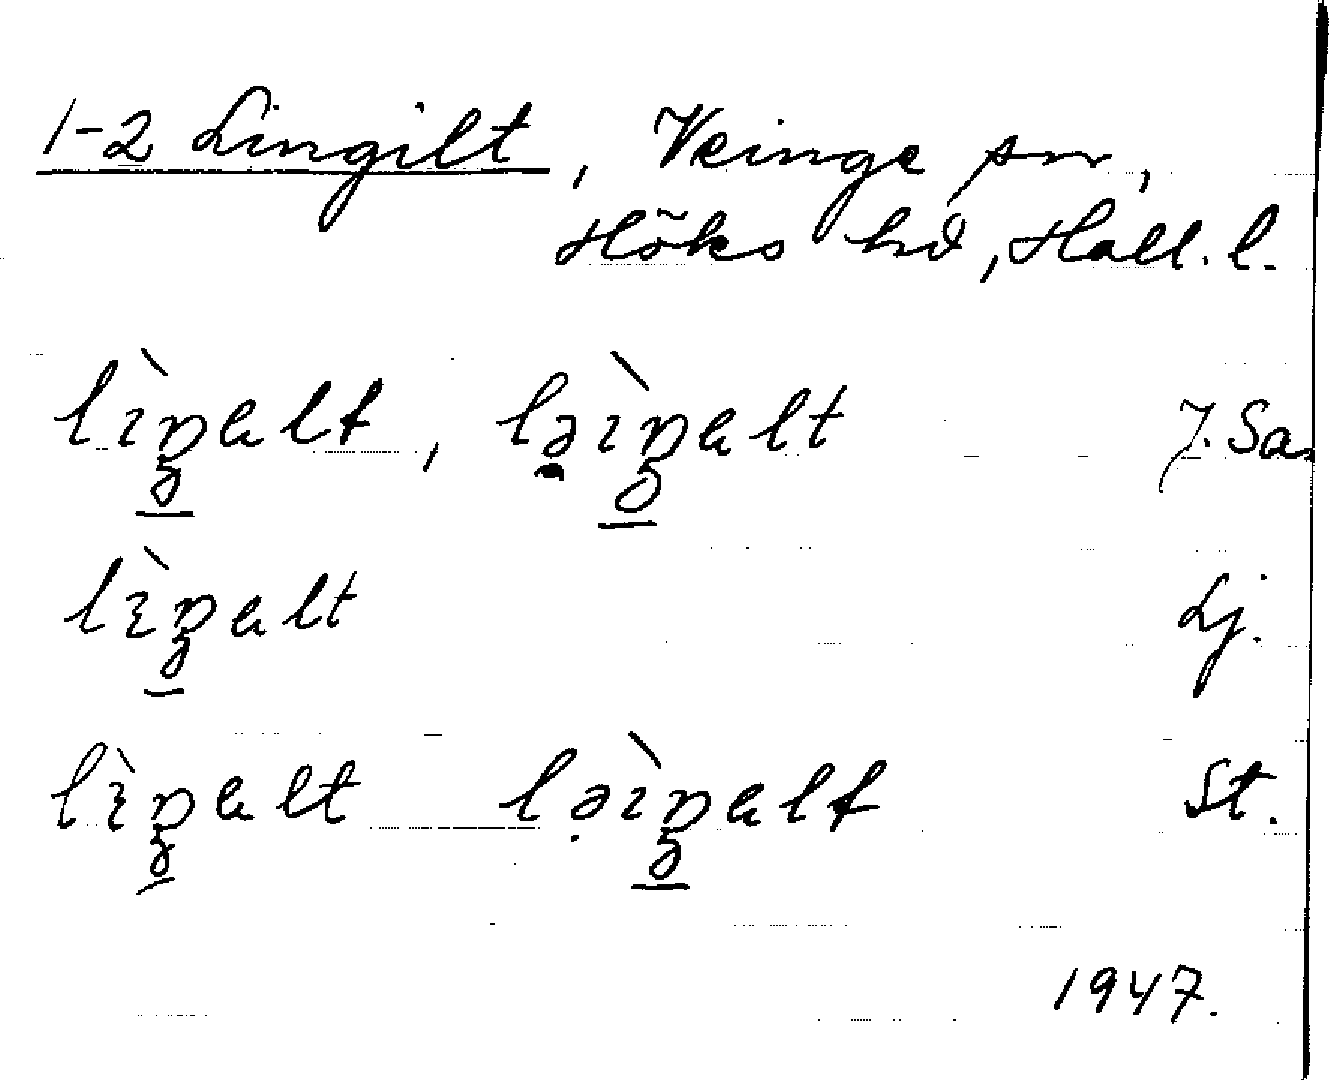 1-2 Lingilt, Veinge sn,
Höks hd, Hall. l.
lìŋalt, lə̣ìŋalt J. Sa
lìŋalt Lj.
lìŋalt lə̣ìŋalt St.
1947.